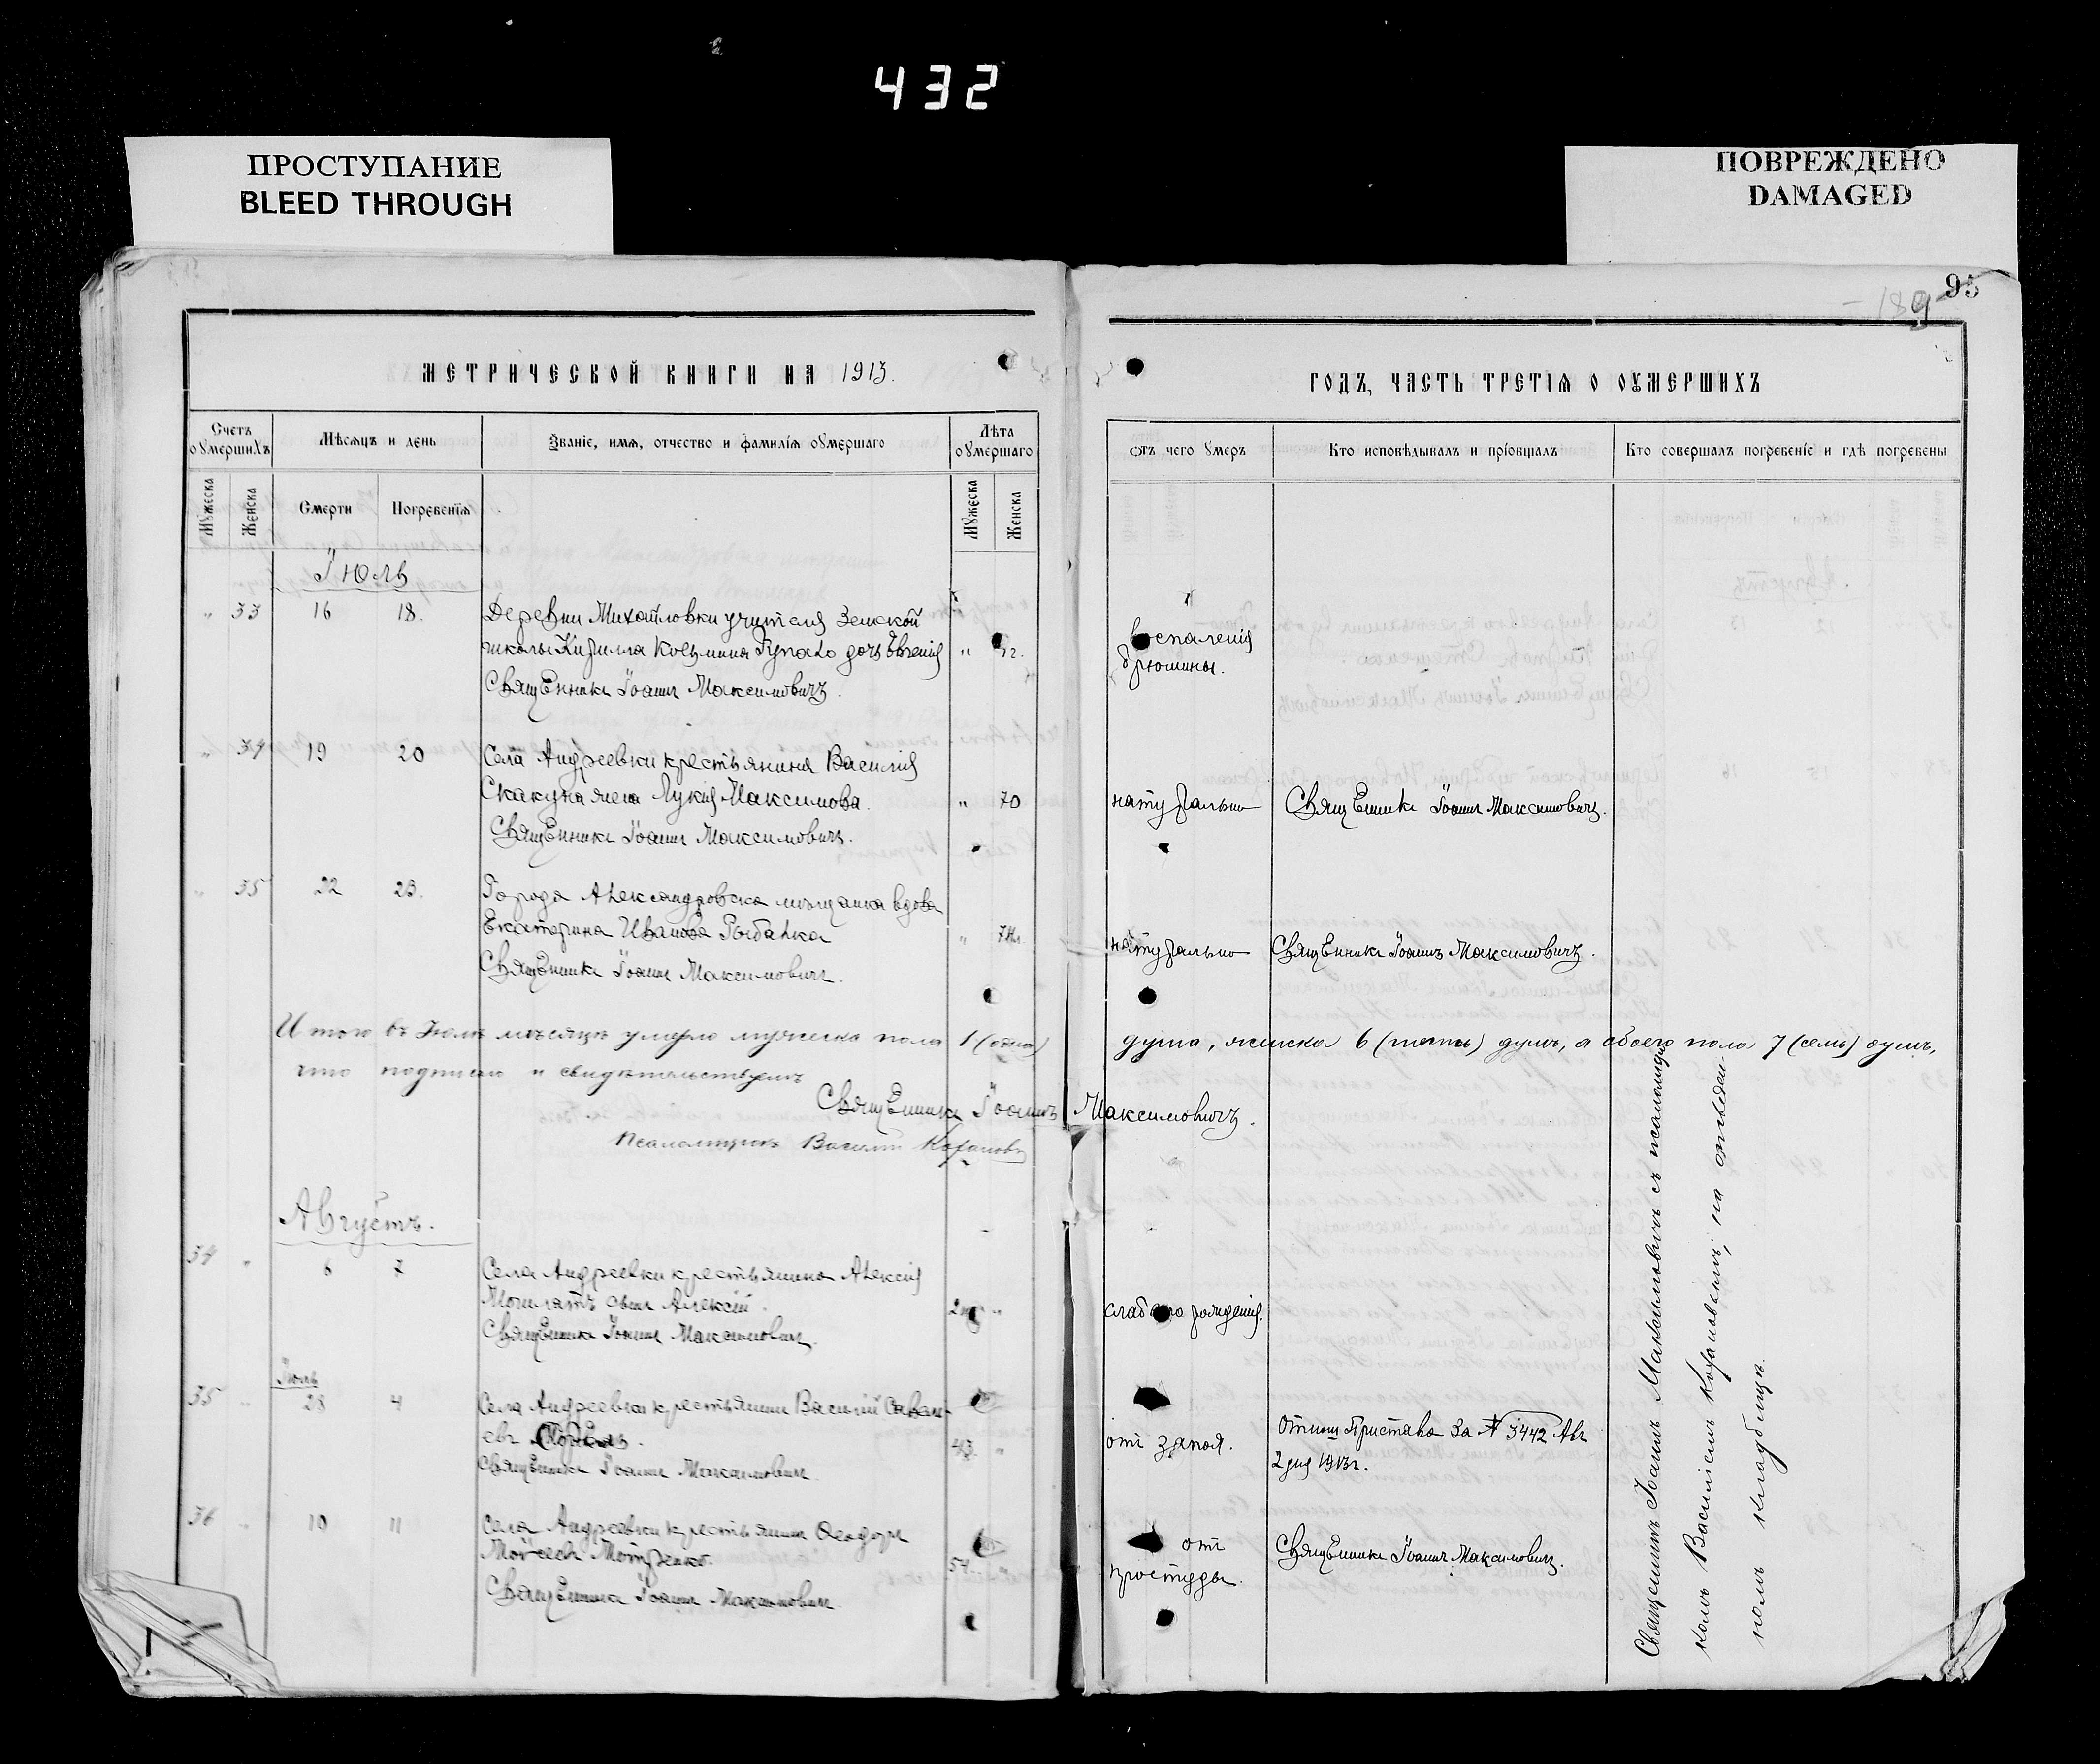 432
ПРОСТУПАНИЕ
BLEED THROUGH
ПОВРЕЖДЕНО
DAMAGED
95
189
МЕТРИЧЕСКОЙ КНИГИ НА 1913.
Счетъ оумершихъ
Мѣсяцъ и день
Званіе, имя, отчество и фамилія оумершаго
Лѣта оумершаго
Мужеска
Женска
Смерти
Погребенія
Мужеска
Женска
Іюль
" 33 16 18. Деревни Михайловки учителя Земской
школы Кирилла Козьмина дочь Евгенія "
Священникъ Іоаннъ Максимовичъ.
" 34 19 20 Села Андреевки крестьянина Василія
Скакуна жена Лукія Максимова. " 70
Священникъ Іоаннъ Максимовичъ.
" 35 22 23. Города Александровска мѣщанка вдова
Екатерина Иванова Рыбалка "
Священникъ Іоаннъ Максимовичъ.
Итого въ Іюлѣ мѣсяцѣ умерло мужеска пола 1 (одна)
что подписью и свидѣтельствуемъ
Священникъ Іоаннъ
Псаломщикъ Василій
Августъ.
34 " 6 7 Села Андреевки крестьянина Алексія
сынъ Алексій.
Священникъ Іоаннъ Максимовичъ.
Іюль
35 " 28 4 Села Андреевки крестьянинъ Василій
43. "
Священникъ Іоаннъ Максимовичъ.
36 " 10 11 Села Андреевки крестьянинъ Ѳеодоръ
Моисеевъ
Священникъ Іоаннъ Максимовичъ.
ГОДЪ, ЧАСТЬ ТРЕТІЯ О ОУМЕРШИХЪ
Отъ чего умеръ
Кто исповѣдывалъ и пріобщалъ
Кто совершалъ погребеніе и гдѣ погребены
воспаленія
брюшины.
натурально Священникъ Іоаннъ Максимовичъ.
натурально Священникъ Іоаннъ Максимовичъ.
душа, женска 6 (шесть) душъ, а обоего пола 7 (семь) душъ,
Максимовичъ.
слабаго рожденія.
отъ запоя.
Отнош. Пристава За № 3442 Авг.
2 дня 1913 г.
отъ
простуды.
Священникъ Іоаннъ Максимовичъ.
Священникъ Іоаннъ Максимовичъ съ псаломщи-
комъ Василіемъ на отведен-
номъ кладбищѣ.